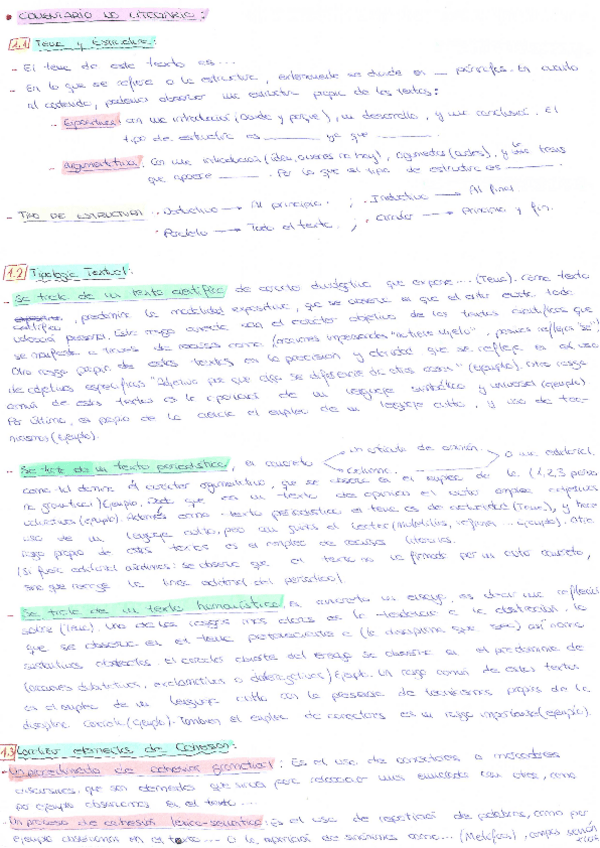 • COMENTARIO NO LITERARIO:
1.1 Tema y Estructura:
- El tema de este texto es ...
- En lo que se refiere a la estructura, externamente se divide en __ párrafos. En cuanto
al contenido, podemos observar una estructura propia de los textos:
- Expositivos: con una introducción (donde y porque), un desarrollo, y una conclusión. El
tipo de estructura es ______ ya que ______.
- Argumentativa. Con una introducción ( ), argumentos (cuales), y tesis
que aparece ______. Por lo que el tipo de estructura es ______.
- TIPO DE ESTRUCTURA: . Deductiva → Al principio. ; . Inductiva → Al final
. Paralela → Todo el texto. ; . Circular → Principio y fin.
1.2 Tipología Textual:
- Se trata de un texto científico de carácter divulgativo que expone ... (Tema). Como texto
científico, predomina la modalidad expositiva, que se observa en que el autor evita toda
valoración personal. Este rasgo conecta con el carácter objetivo de los textos científicos que
se manifiesta a través de recursos como (oraciones impersonales , pasivas reflejas "se").
Otro rasgo propio de estos textos es la precisión y claridad que se refleja en el uso
de adjetivos específicos "Adjetivo por que algo se diferencia de otras cosas" (ejemplo). Otro rasgo
común de estos textos es la aparición de un lenguaje simbólico y universal (ejemplo)
Por último, es propio de la ciencia el empleo de un lenguaje culto, y uso de tec-
nicismos (ejemplo).
- Se trata de un texto periodístico, en concreto un artículo de opinión o un editorial.
columna.
como tal domina el carácter argumentativo, que se observa en el empleo de la (1,2,3 persona
gramatical) Ejemplo. Dado que es un texto de opinión el autor emplea adjetivos
valorativos (ejemplo). Además como texto periodístico el tema es de actualidad (Tema), y hace
uso de un lenguaje culto, pero sin el lector ( ... Ejemplo). Otro
rasgo propio de estos textos es el empleo de recursos literarios.
(Si fuese editorial añadimos: se observa que el texto no va firmado por un autor concreto,
sino que recoge la línea editorial del periódico).
- Se trata de un texto humanístico. En concreto un ensayo, es decir una reflexión
sobre (Tema). Uno de los rasgos más claros es la tendencia a la abstracción, lo
que se observa en el tema perteneciente a (la disciplina que sea) así como
sustantivos abstractos. El carácter abierto del ensayo se observa en el predominio de
(oraciones dubitativas, exclamativas o interrogativas) Ejemplo. Un rasgo común de estos textos
es el empleo de un lenguaje culto con la presencia de tecnicismos propios de la
disciplina concreta (Ejemplo). También el empleo de conectores es un rasgo importante (ejemplo).
1.3 Localizar elementos de Cohesión:
- Un procedimiento de cohesión gramatical: Es el uso de conectores o marcadores
discursivos, que son elementos que sirven para relacionar unos enunciados con otros, como
por ejemplo observamos en el texto ...
- Un proceso de cohesión léxico-semántica: Es el uso de repetición de palabras, como por
ejemplo observamos en el texto ... O la aparición de sinónimos como ... (Metáfora), campos semán